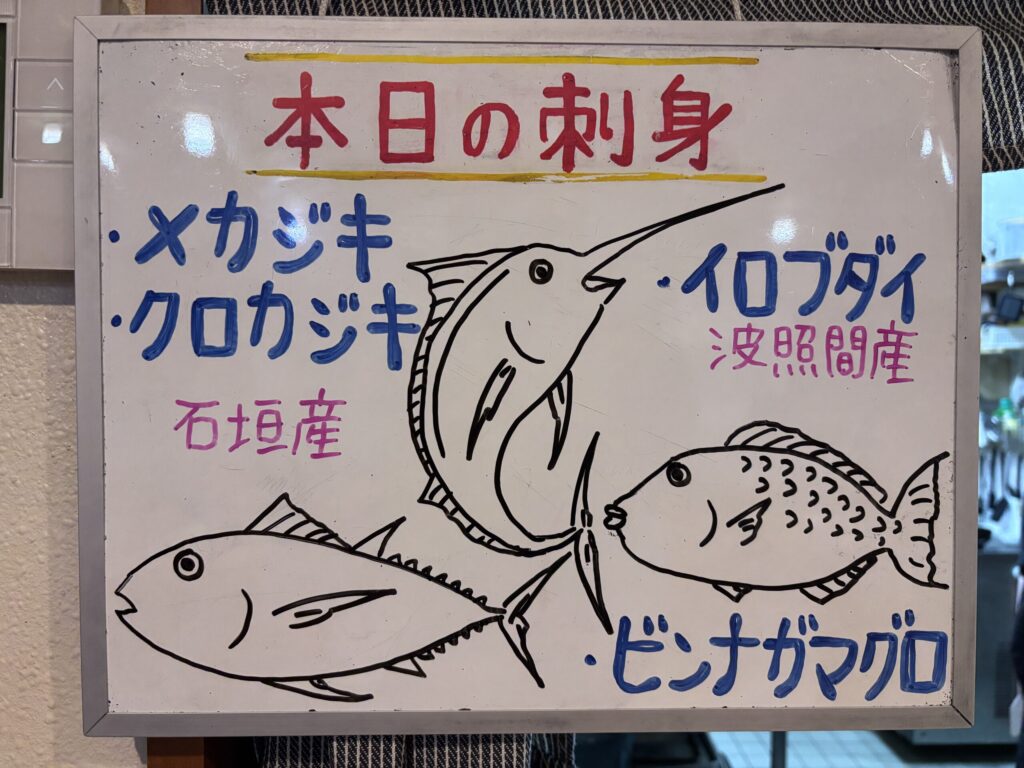 本日の刺身
・メカジキ
・クロカジキ
石垣産
・イロブダイ
波照間産
・ビンナガマグロ